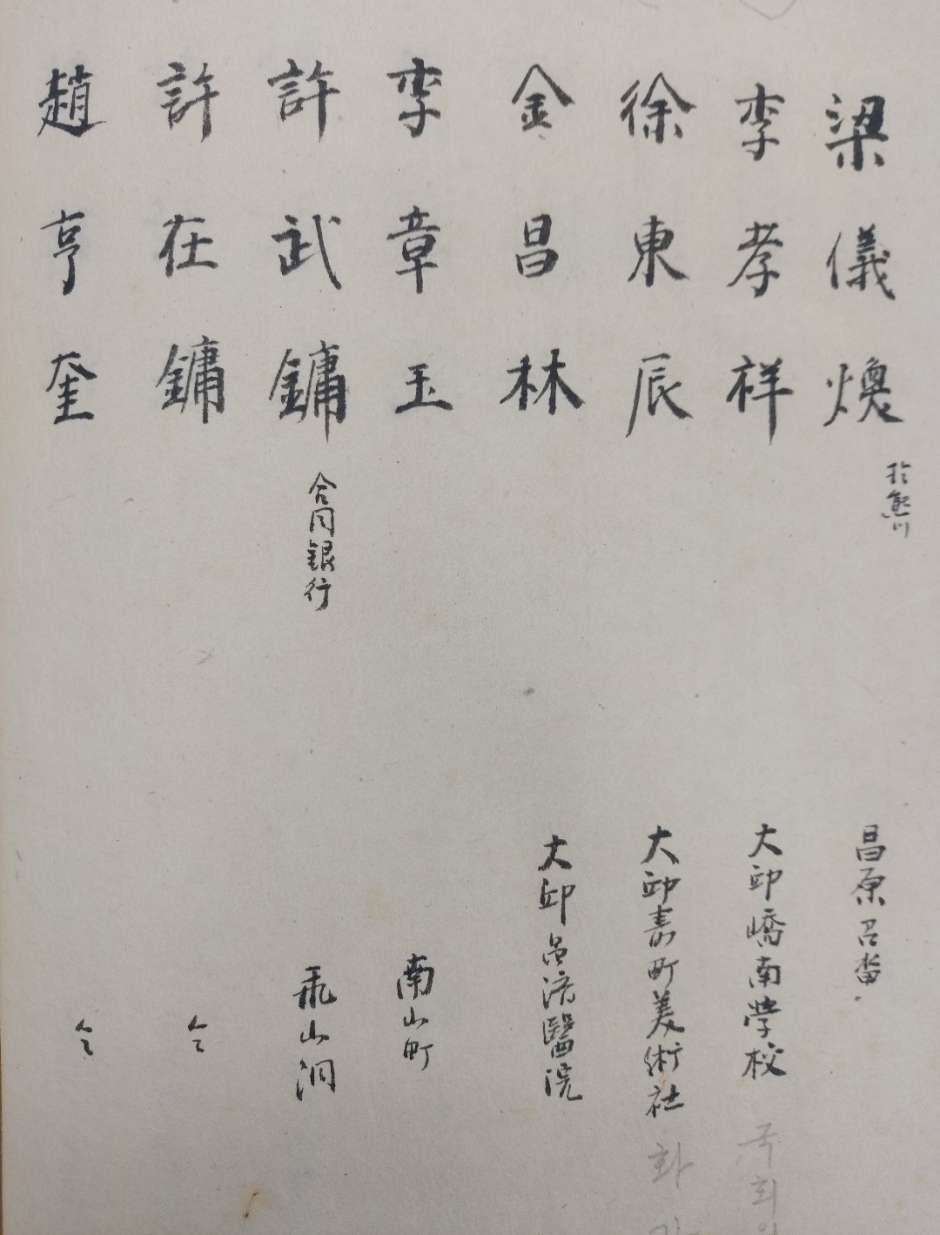 梁儀煥 於熊川 昌原召畓
李孝祥 大邱嶠南学校 국회의
徐東辰 大邱壽町美術社 화
金昌林 大邱 醫院
李章玉 南山町
許武鏞 合同銀行 飛山洞
許在鏞 仝
趙亨奎 仝